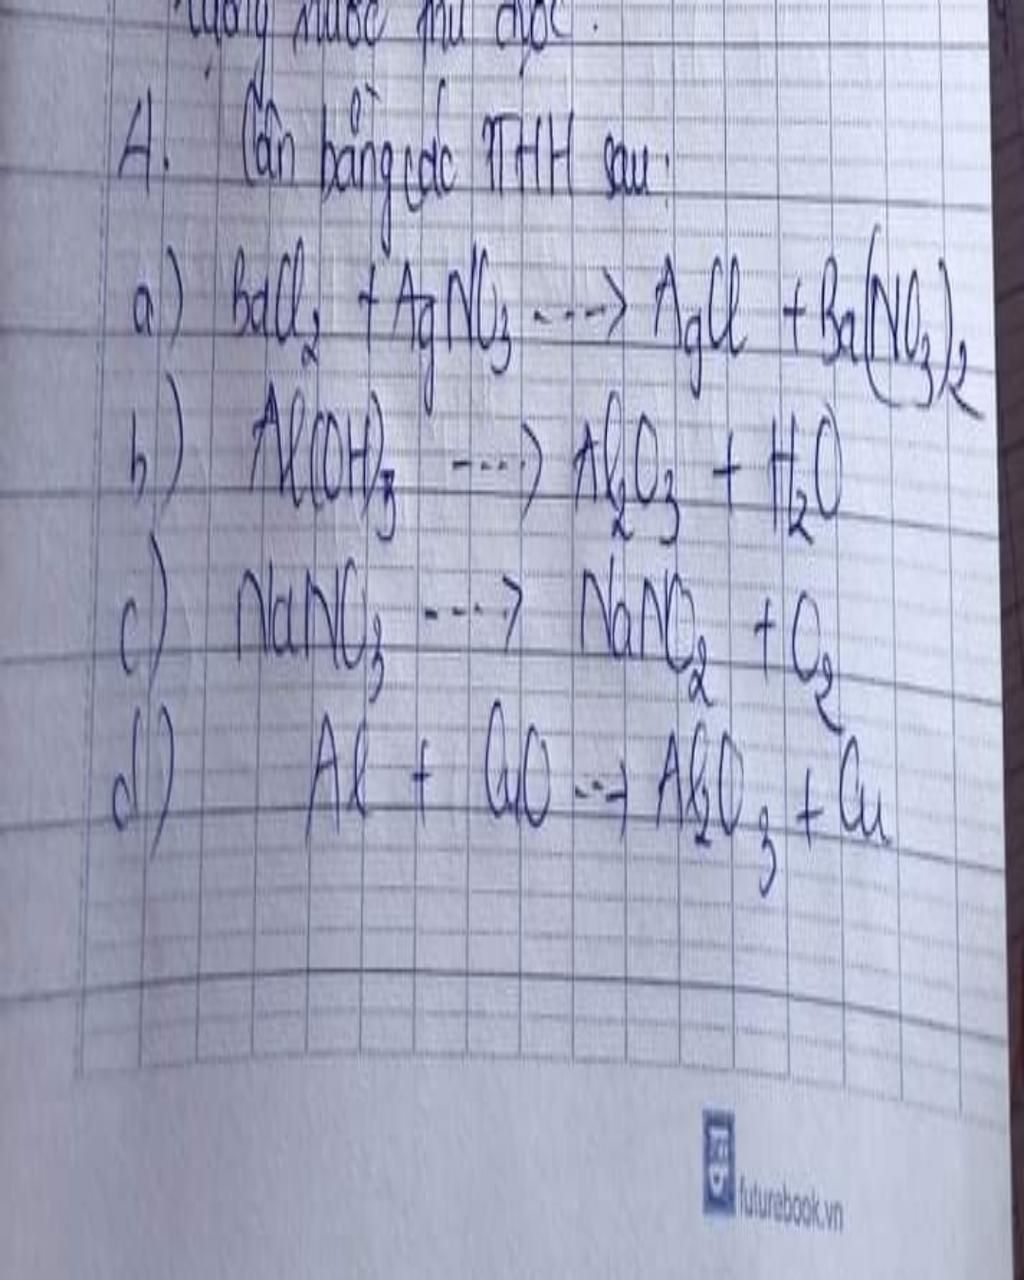 lượng nước thu được.
A. Cân bằng các PTHH sau:
a) BaCl₂ + AgNO₃ ----> AgCl + Ba(NO₃)₂
b) Al(OH)₃ ----> Al₂O₃ + H₂O
c) NaNO₃ ----> NaNO₂ + O₂
d) Al + CuO ---> Al₂O₃ + Cu
futurebook.vn